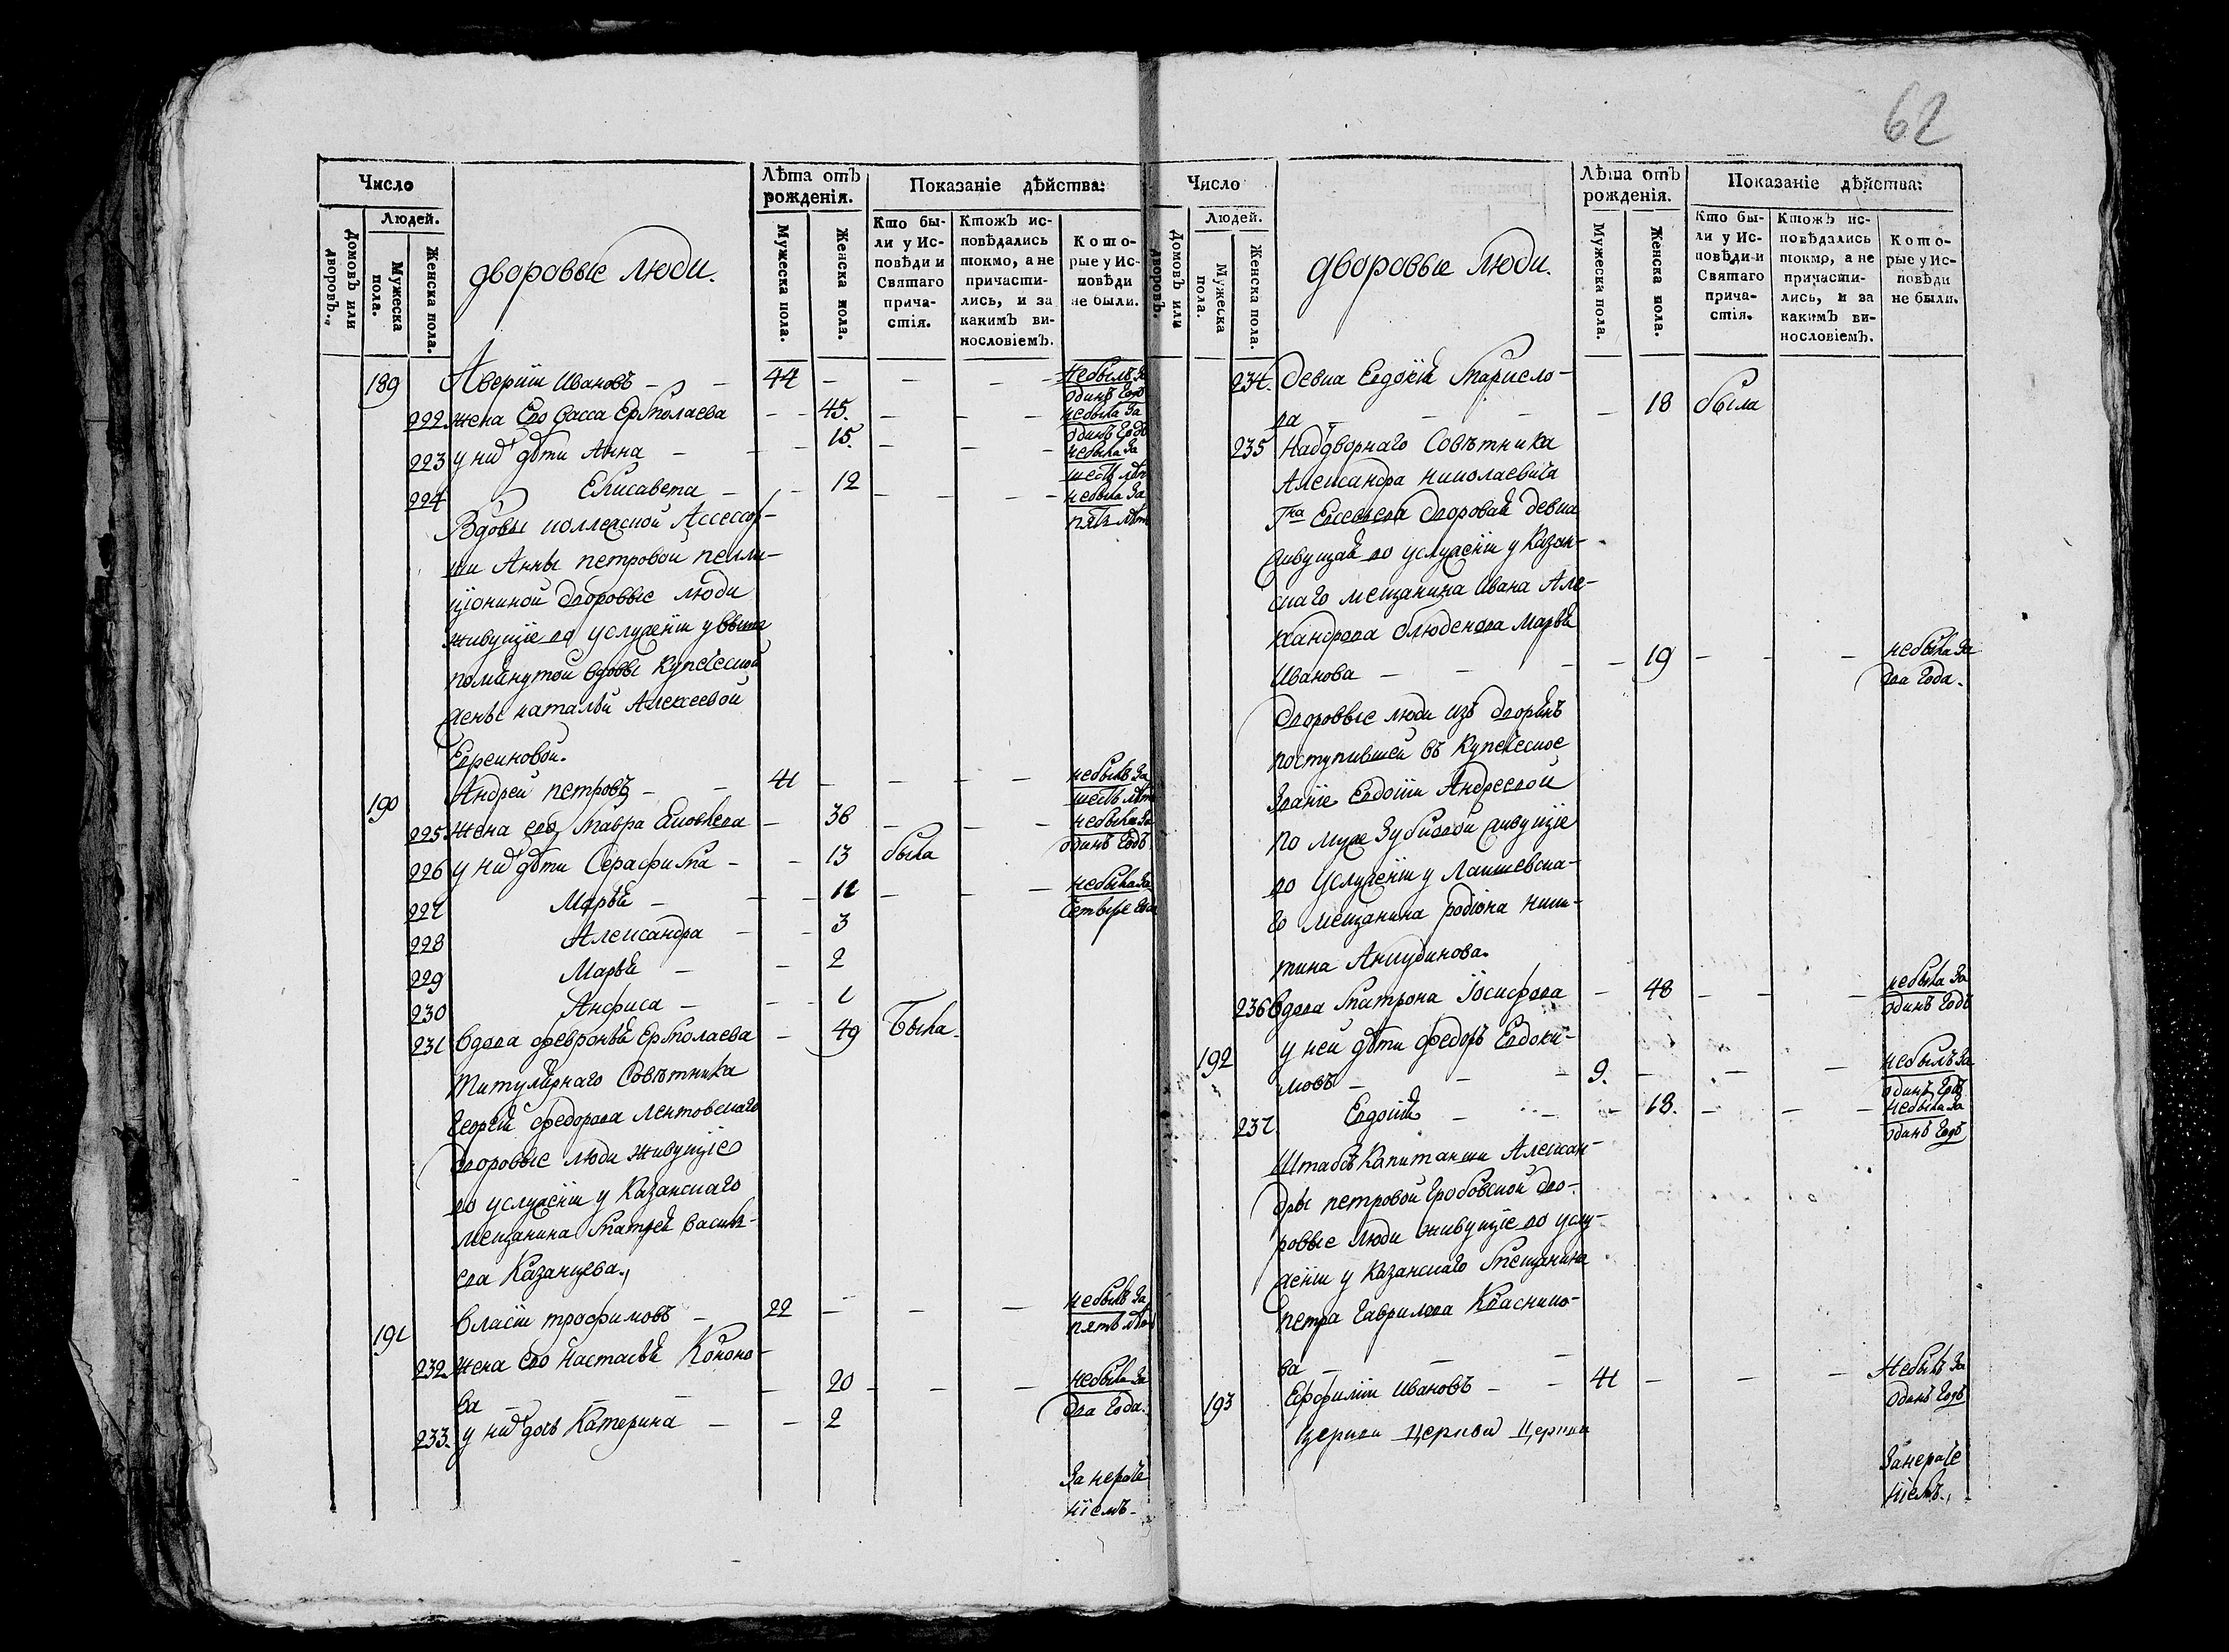 62
Число
Людей.
Домовъ или дворовъ.
Мужеска пола.
Женска пола.
дворовые люди.
Лѣта отъ рожденія.
Мужеска пола.
Женска пола.
Показаніе дѣйства:
Кто были у Исповѣди и Святаго причастія.
Ктожъ исповѣдались токмо, а не причастились, и за какимъ винословіемъ.
Которые у Исповѣди не были.
189 Аверіи Ивановъ – – 44 – – – небылъ за
одинъ годъ
222. жена Его Васса Ермолаева – – 45. – – небыла за
одинъ годъ
223 у них дѣти Анна – – – 15. – – – небыла за
шесть лѣт
224 Елисавета – – 12 – – – – небыла за
пять лѣт
Вдовы коллежской Ассессор-
ши Анны петровой пелли-
ціониной дворовые люди
живущіе во услуженіи у выше
помянутой вдовы купеческой
жены наталіи Алексеевой
190 Андрей петровъ – – 41 – – – – небылъ за
шесть лѣт
225. жена его мавра Яковлева – 36 – – – небыла за
одинъ годъ
226 у них дѣти Серафима – – 13 была
227 Марья – – – 11 – – небыла за
четыре года
228 Александра – – 3
229 Марья – – 2
230 Анфиса – – – 1
231 Вдова февронья Ермолаева – 49 Была
Титулярнаго Совѣтника
Георгія федорова Лентовскаго
дворовые люди живущіе
во услуженіи у Казанскаго
мещанина матвея василь-
ева Казанцева.
191 Власіи трофимовъ – 22 – – – небылъ за
пять лѣт
232. жена его Настасья Конono-
ва – – – – 20 – – – небыла за
два года.
233. у них дочь Катерина – – 2
За нераче
ніемъ.
Число
Людей.
Домовъ или дворовъ.
Мужеска пола.
Женска пола.
дворовые люди.
Лѣта отъ рожденія.
Мужеска пола.
Женска пола.
Показаніе дѣйства:
Кто были у Исповѣди и Святаго причастія.
Ктожъ исповѣдались токмо, а не причастились, и за какимъ винословіемъ.
Которые у Исповѣди не были.
234. девка Евдокія Маркело-
ва – – – – 18 была
235 Надворнаго Совѣтника
Александра николаевича
Г-на Евсевьева дворовая девка
живущая во услуженіи у Казан-
скаго мещанина Ивана Але-
ксандрова Марья
Иванова – – – – 19 – – – небыла за
два года.
дворовые люди изъ дворянъ
поступившей въ Купеческое
Званіе Евдокіи Андреевой
по муже Зубковой живущіе
во услуженіи у Лаишевска-
го мещанина родіона ники-
тина Анкудинова.
236 Вдова матрона Іосифова – 48 – – – небыла за
одинъ годъ
192 у ней дѣти федоръ Евдоки-
мовъ – – – 9. – – – небылъ за
одинъ годъ
237 Евдокія – – – 18. – – – небыла за
одинъ годъ
Штабсъ Капитанши Алексан-
дры петровой Гробовской дво-
ровые люди живущіе во услу-
женіи у Казанскаго Мещанина
петра Гаврилова Красико-
ва – – –
193 Ефимъ Ивановъ – – 41 – – – Небылъ за
одинъ годъ
церкви церкви церкви
За нераче
ніемъ.